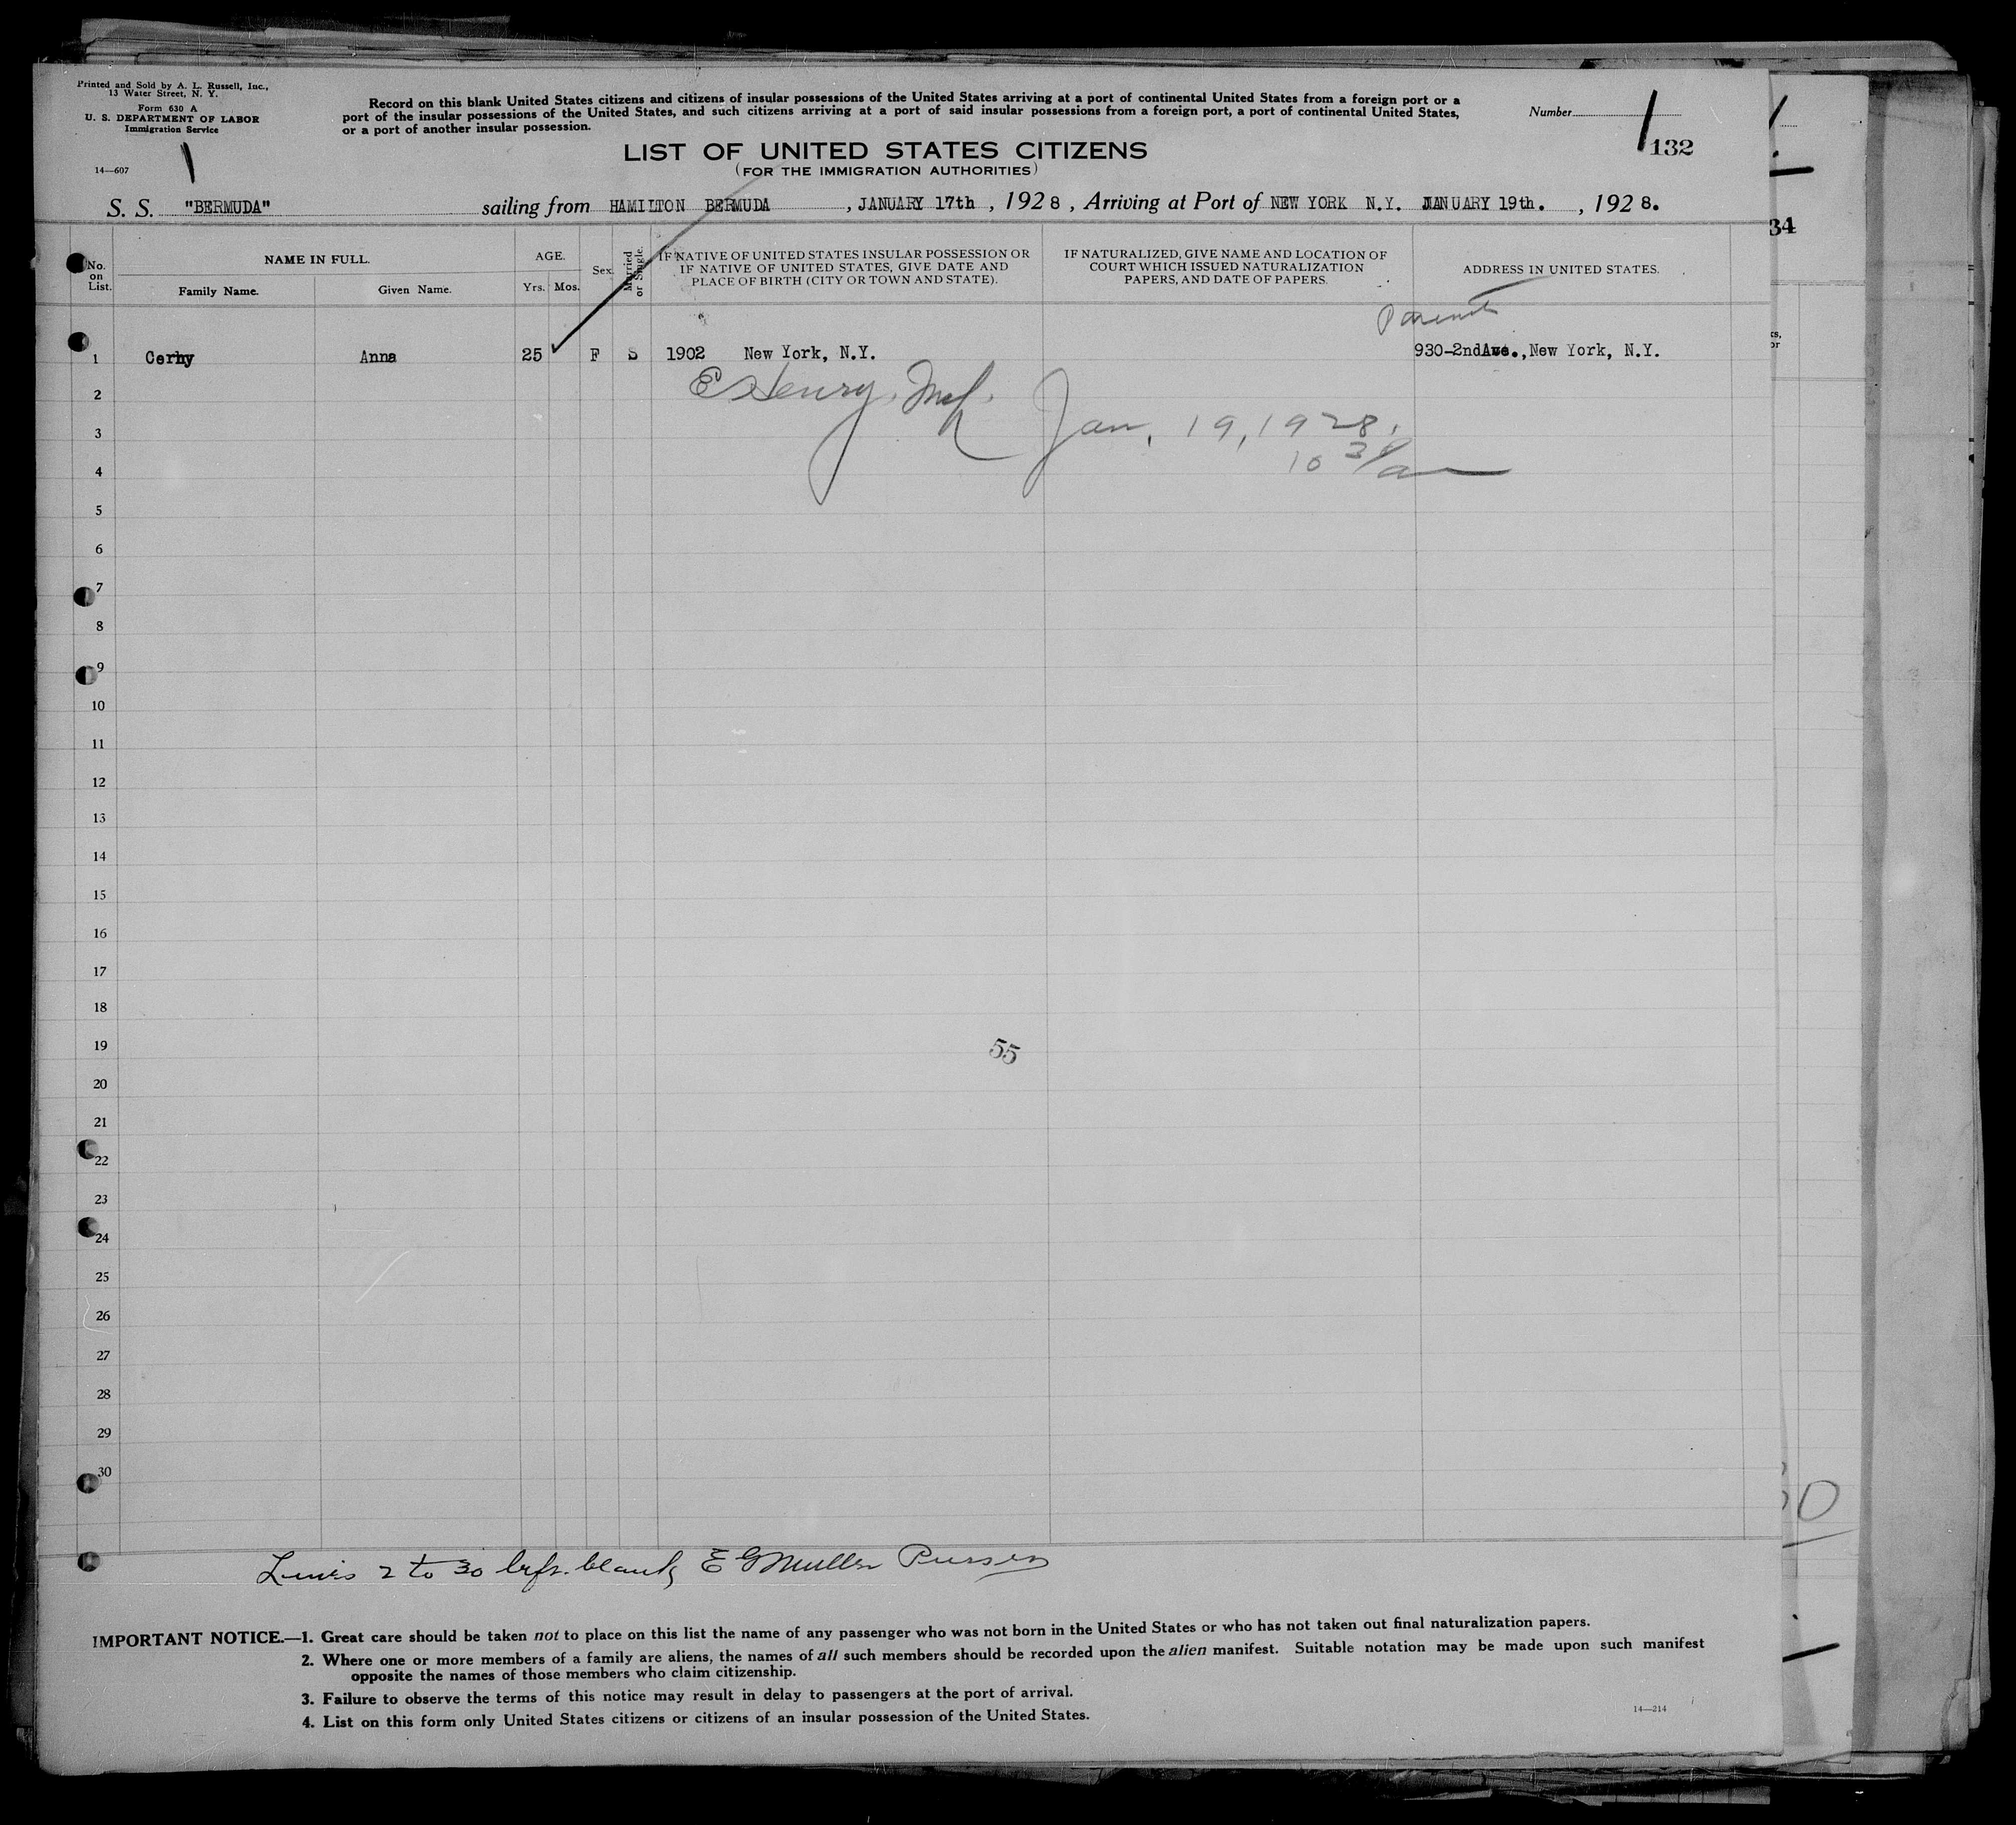 Printed and Sold by A. L. Russell, Inc.,
13 Water Street, N. Y.
Form 630 A
U. S. DEPARTMENT OF LABOR
Immigration Service
14—607
Record on this blank United States citizens and citizens of insular possessions of the United States arriving at a port of continental United States from a foreign port or a
port of the insular possessions of the United States, and such citizens arriving at a port of said insular possessions from a foreign port, a port of continental United States,
or a port of another insular possession.
Number
132
LIST OF UNITED STATES CITIZENS
(FOR THE IMMIGRATION AUTHORITIES)
S. S. "BERMUDA" sailing from HAMILTON BERMUDA, JANUARY 17th, 1928, Arriving at Port of NEW YORK N.Y. JANUARY 19th., 1928.
34
No. on List. NAME IN FULL. AGE. Sex. Married or Single. IF NATIVE OF UNITED STATES INSULAR POSSESSION OR IF NATIVE OF UNITED STATES, GIVE DATE AND PLACE OF BIRTH (CITY OR TOWN AND STATE). IF NATURALIZED, GIVE NAME AND LOCATION OF COURT WHICH ISSUED NATURALIZATION PAPERS, AND DATE OF PAPERS. ADDRESS IN UNITED STATES.
Family Name. Given Name. Yrs. Mos.
Parents
1 Cerny Anna 25 F S 1902 New York, N.Y. 930-2ndAve.,New York, N.Y.
2 E Henry
3 Jan. 19, 1928.
4
5
6
7
8
9
10
11
12
13
14
15
16
17
18
19 55
20
21
22
23
24
25
26
27
28
29
30
Lines 2 to 30 left blank E G Muller Purser
IMPORTANT NOTICE.—1. Great care should be taken not to place on this list the name of any passenger who was not born in the United States or who has not taken out final naturalization papers.
2. Where one or more members of a family are aliens, the names of all such members should be recorded upon the alien manifest. Suitable notation may be made upon such manifest
opposite the names of those members who claim citizenship.
3. Failure to observe the terms of this notice may result in delay to passengers at the port of arrival.
4. List on this form only United States citizens or citizens of an insular possession of the United States.
14—214